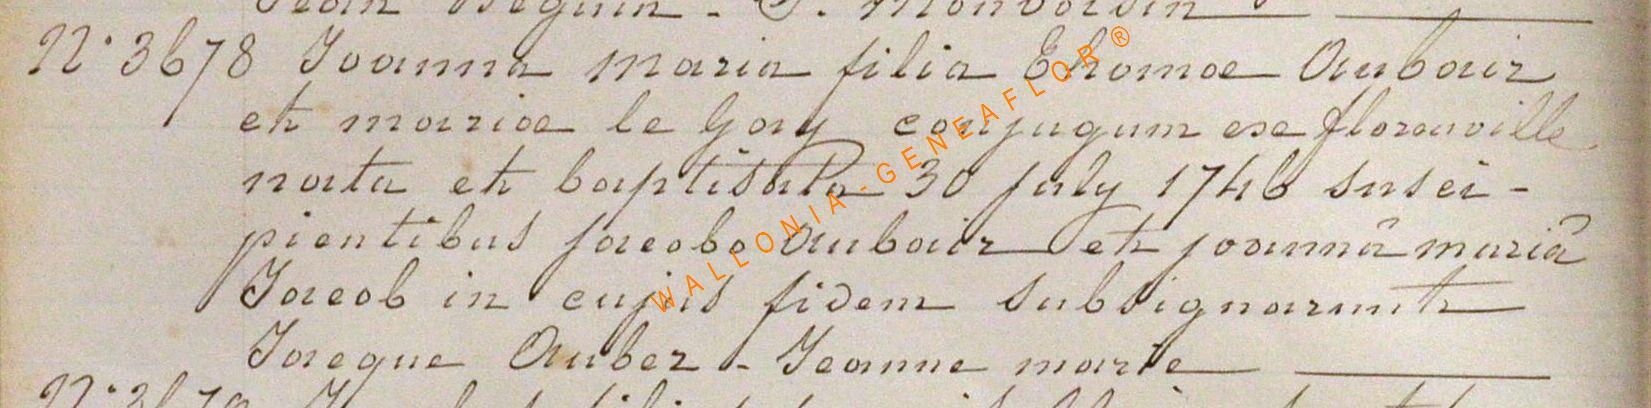 Jean Beguin - J. Monvoisin
N° 3678 Joanna maria filia Thomae Aubair
et mariae le Gay conjugum ex florenville
nata et baptisata 30 july 1746 susci-
pientibus jacobo aubair et joannâ mariâ
Jacob in cujus fidem subsignarunt
Jacque Auber - Jeanne marie
N° 3679
WALLONIA-GENEAFLOR®